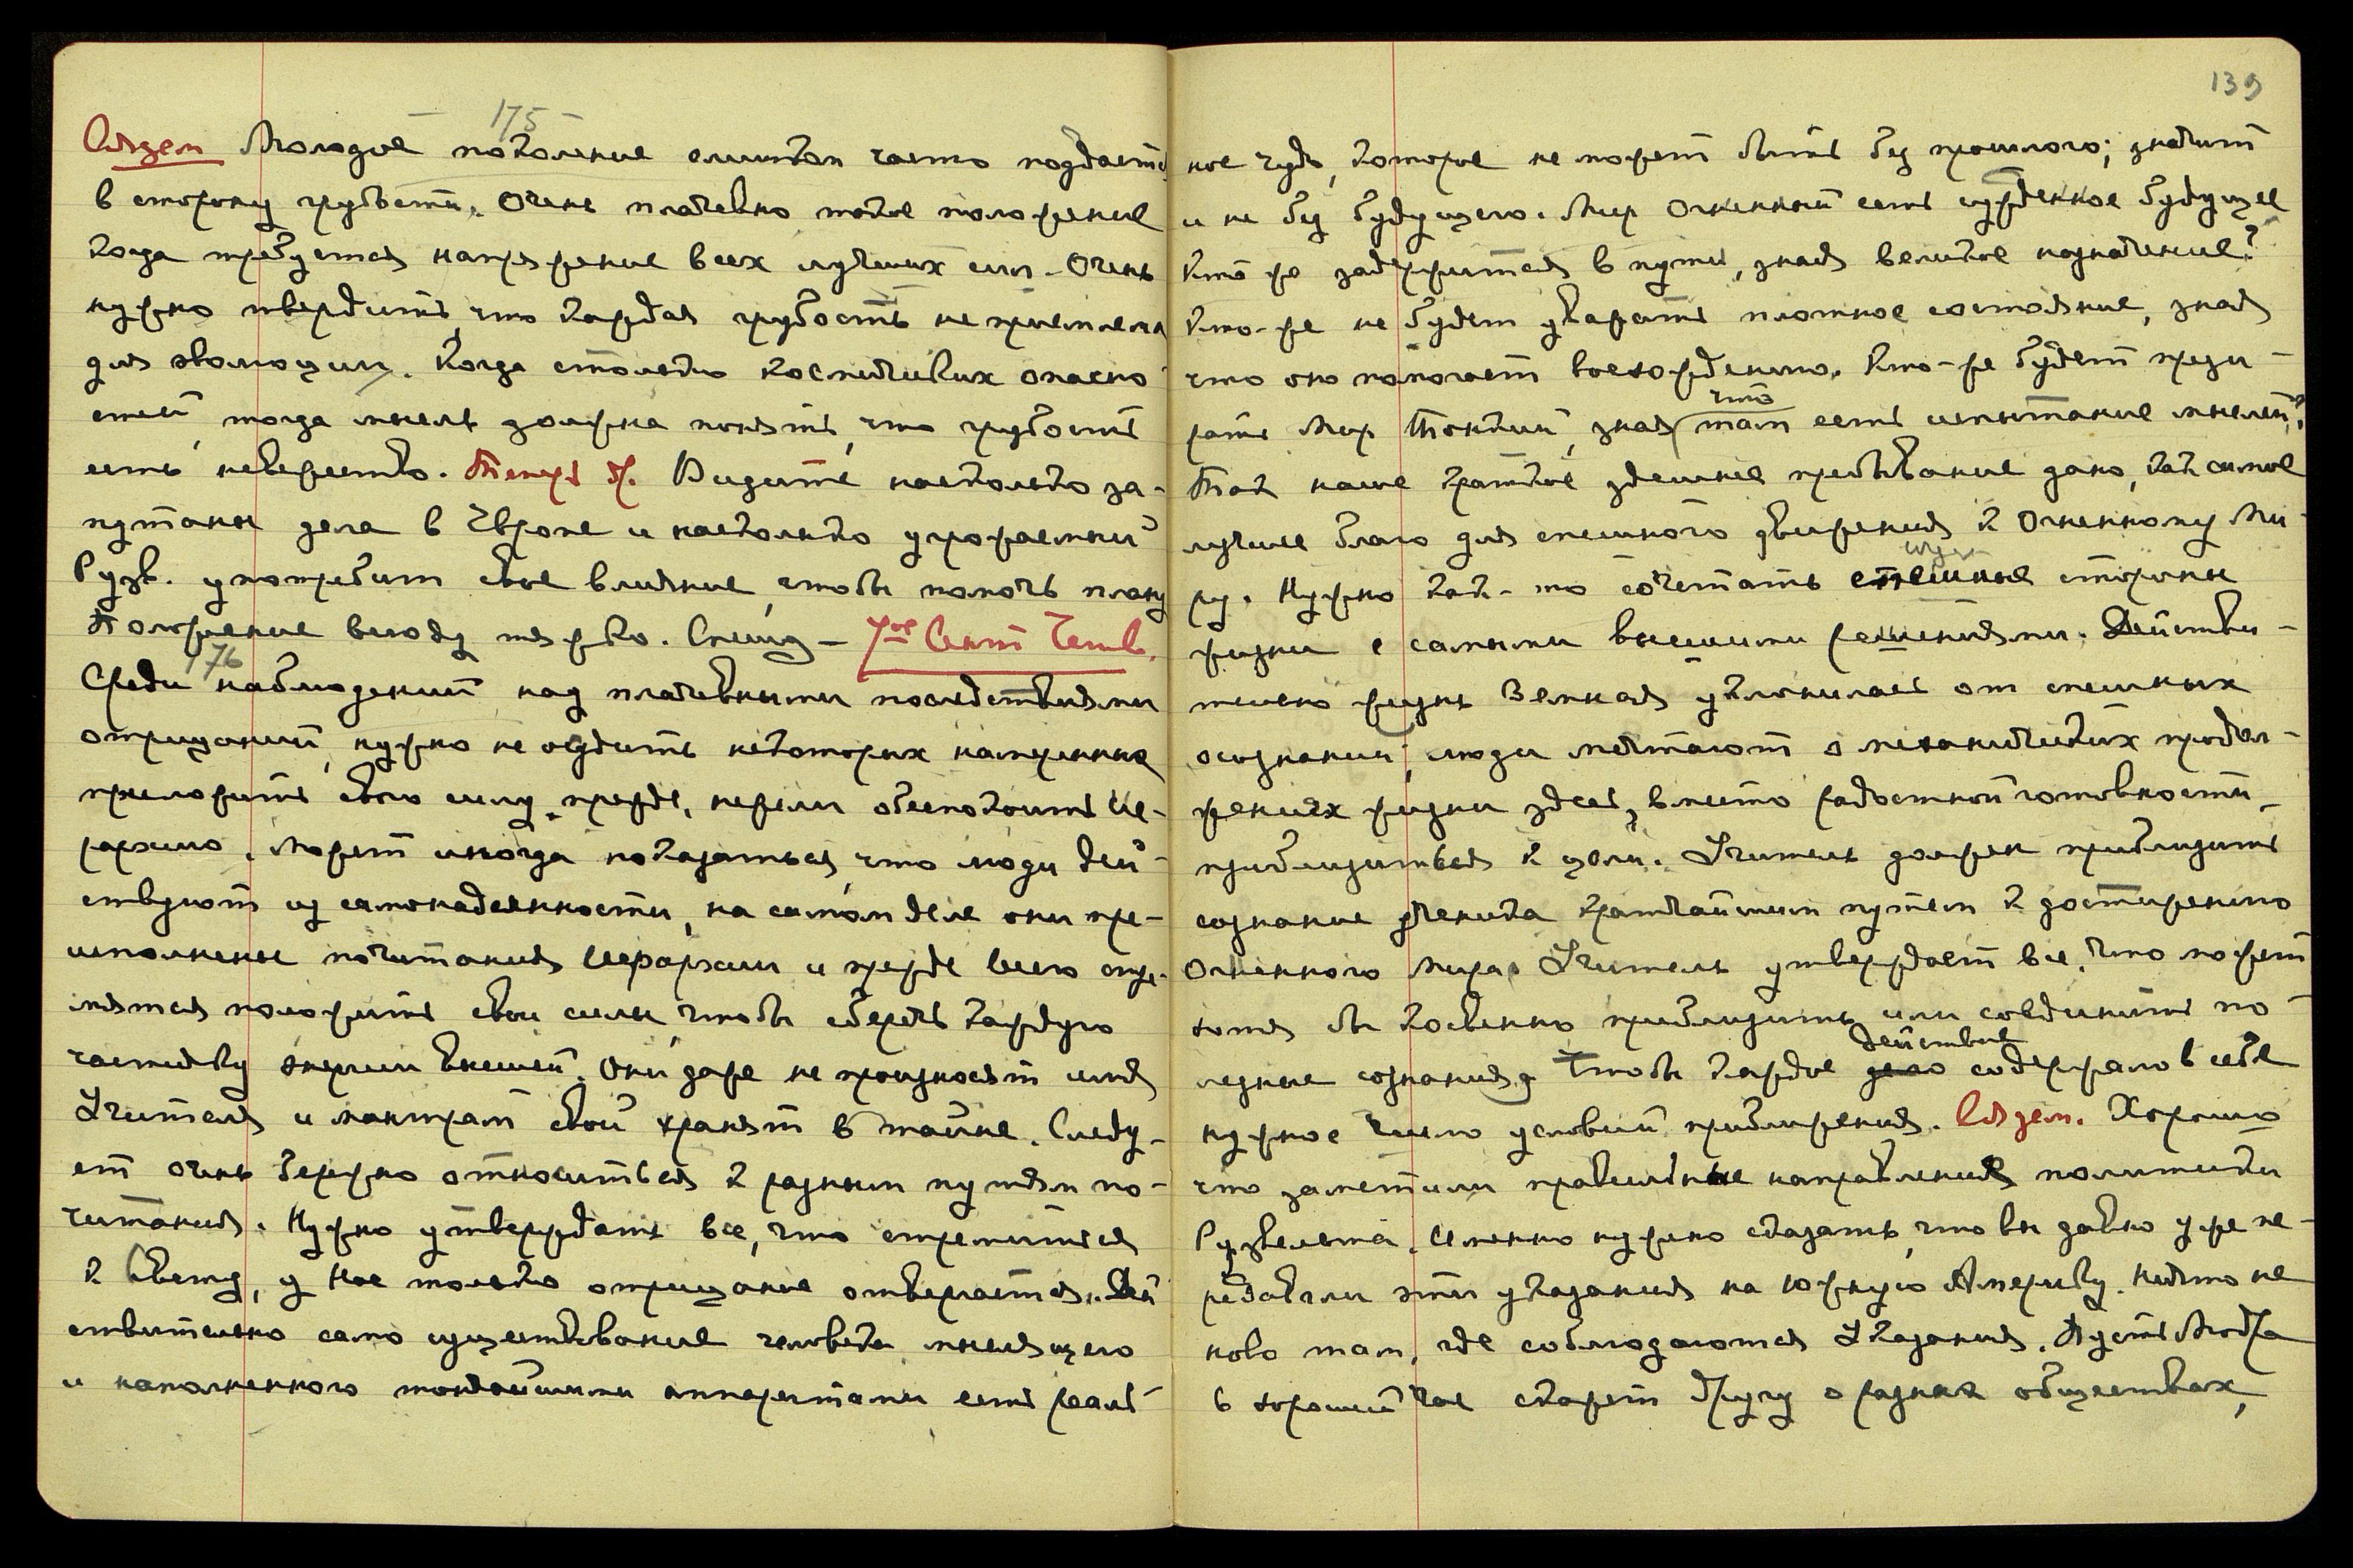 175
Следуем Молодое поколение слишком часто поддается
в сторону грубости. Очень плачевно такое положение
когда требуется напряжение всех лучших сил. Очень
нужно твердить, что каждая грубость не приемлема
для эволюции. Когда столько космических опасно-
стей, тогда мысль должна понять, что грубость
есть невежество. Видите насколько за-
путаны дела в Европе и насколько угрожаемый
Рузв. употребит свое влияние, чтобы помочь плану
Положение всюду тяжко. Спешу – 7ое Сент Четв.
176
Среди наблюдений над плачевными последствиями
отрицаний, нужно не осудить некоторых намеренно
приложить свою силу, прежде, нежели обеспокоить Ие-
рархию. Может иногда показаться, что люди дей-
ствуют из самонадеянности, на самом деле они пре-
исполнены почитания Иерархии и прежде всего стре-
мятся положить свои силы, чтобы сберечь каждую
частичку энергии высшей. Они даже не произносят имя
Учителя и мантрам свой хранят в тайне. Следу-
ет очень бережно относиться к разным путям по-
читания. Нужно утверждать все, что стремится
к Свету, у Нас только отрицание отвергается. Дей-
ствительно само существование человека мыслящего
и наполненного тончайшими аппаратами есть реаль-
139
ное чудо, которое не может быть без прошлого; значит
и не без будущего. Мир Огненный есть сужденное будущее
Кто же задержится в пути, зная великое назначение?
Кто-же не будет уважать плотное состояние, зная
что оно помогает восхождению. Кто-же будет прези-
что
рать Мир Тонкий, зная там есть испытание мыслей?
Так наше краткое здешнее пребывание дано, как самое
лучшее благо для спешного движения к Огненному Ми-
ру. Нужно как-то сочетать стороны
жизни с самыми высшими решениями. Действи-
тельно жизнь Земная уклонилась от спешных
осознаний; люди мечтают о механических продол-
жениях жизни здесь, вместо радостной готовности
приблизиться к цели. Учитель должен приблизить
сознание ученика кратчайшим путем к достижению
Огненного Мира. Учитель утверждает все, что может
хотя бы косвенно приблизить или соединить по-
действие
лезные сознания. Чтобы каждое дело содержало в себе
нужное число условий приближения. Следуем. Хорошо
что заметили правильные направления политики
Рузвельта. Именно нужно сказать, что вы давно уже пе-
редавали эти указания на Южную Америку. Ничто не
ново там, где соблюдаются Указания. Пусть Модра
в хороший час скажет Другу о разных обществах,